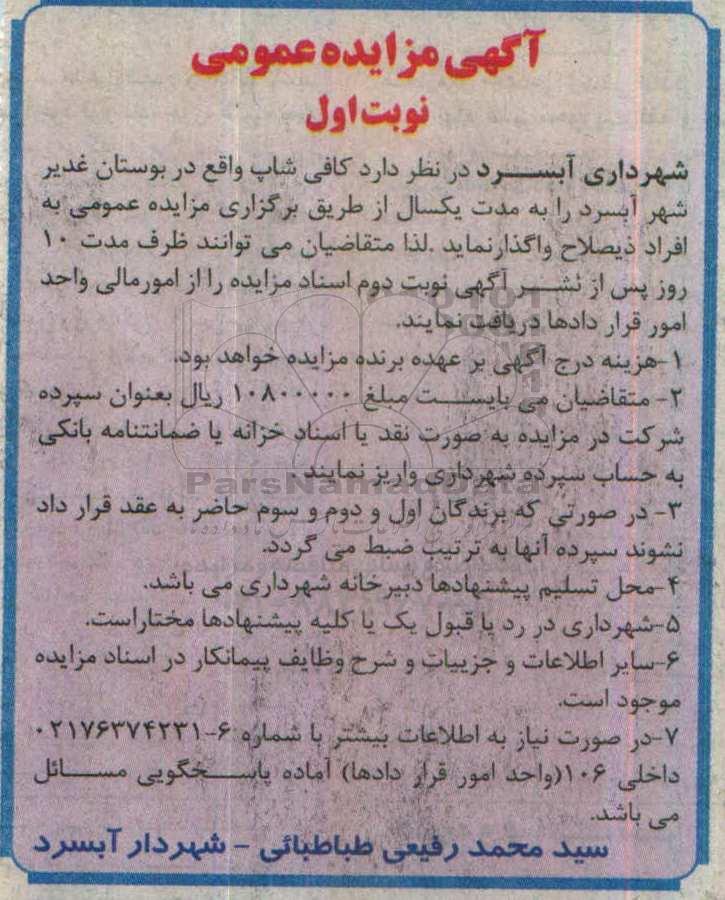 آگهی مزایده عمومی
نوبت اول
شهرداری آبسرد در نظر دارد کافی شاپ واقع در بوستان غدیر
شهر آبسرد را به مدت یکسال از طریق برگزاری مزایده عمومی به
افراد ذیصلاح واگذارنماید .لذا متقاضیان می توانند ظرف مدت ۱۰
روز پس از نشر آگهی نوبت دوم اسناد مزایده را از امورمالی واحد
امور قرار دادها دریافت نمایند.
۱-هزینه درج آگهی بر عهده برنده مزایده خواهد بود.
۲- متقاضیان می بایست مبلغ ۱۰۸۰۰۰۰۰ ریال بعنوان سپرده
شرکت در مزایده به صورت نقد یا اسناد خزانه یا ضمانتنامه بانکی
به حساب سپرده شهرداری واریز نمایند.
ParsNamadData
۳- در صورتی که برندگان اول و دوم و سوم حاضر به عقد قرار داد
نشوند سپرده آنها به ترتیب ضبط می گردد.
۴-محل تسلیم پیشنهادها دبیرخانه شهرداری می باشد.
۵-شهرداری در رد یا قبول یک یا کلیه پیشنهادها مختاراست.
۶-سایر اطلاعات و جزییات و شرح وظایف پیمانکار در اسناد مزایده
موجود است.
۷-در صورت نیاز به اطلاعات بیشتر با شماره ۶-۰۲۱۷۶۳۷۴۲۳۱
داخلی ۱۰۶(واحد امور قرار دادها) آماده پاسخگویی مسائل
می باشد.
سید محمد رفیعی طباطبائی - شهردار آبسرد